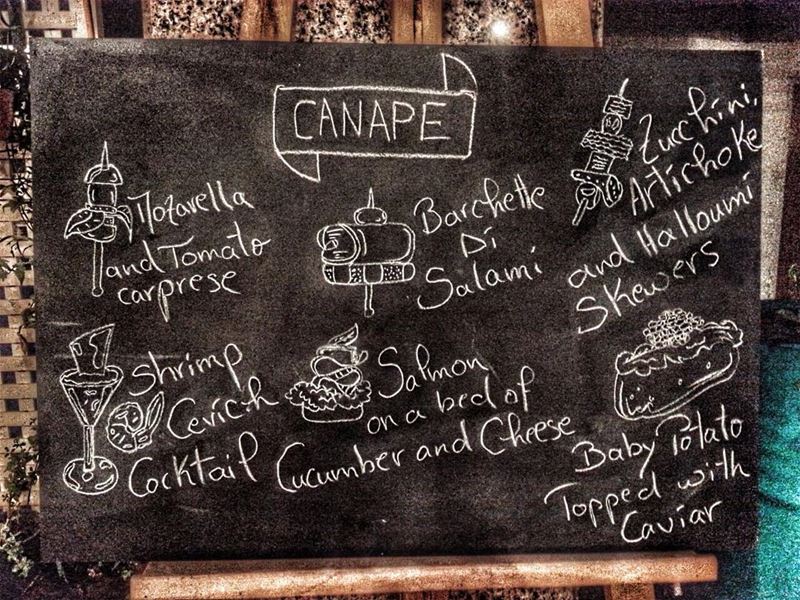 CANAPE
Mozarella
and Tomato
carprese
Barchette
Di
Salami
Zucchini,
Artichoke
and Halloumi
Skewers
Shrimp
Cevich
Cocktail
Salmon
on a bed of
Cucumber and Cheese
Baby Potato
Topped with
Caviar